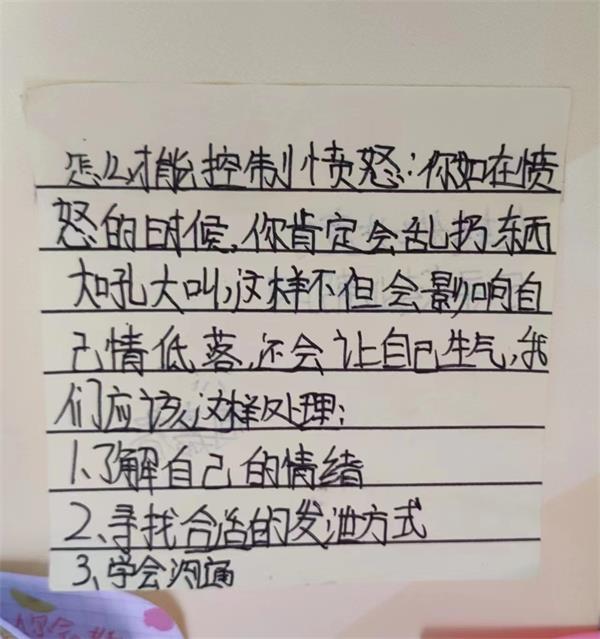 怎么才能控制愤怒:你如在愤
怒的时候,你肯定会乱扔东西
大吼大叫,这样不但会影响自
己情低落,还会让自己生气,我
们应该这样处理:
1、了解自己的情绪
2、寻找合适的发泄方式
3、学会沟通